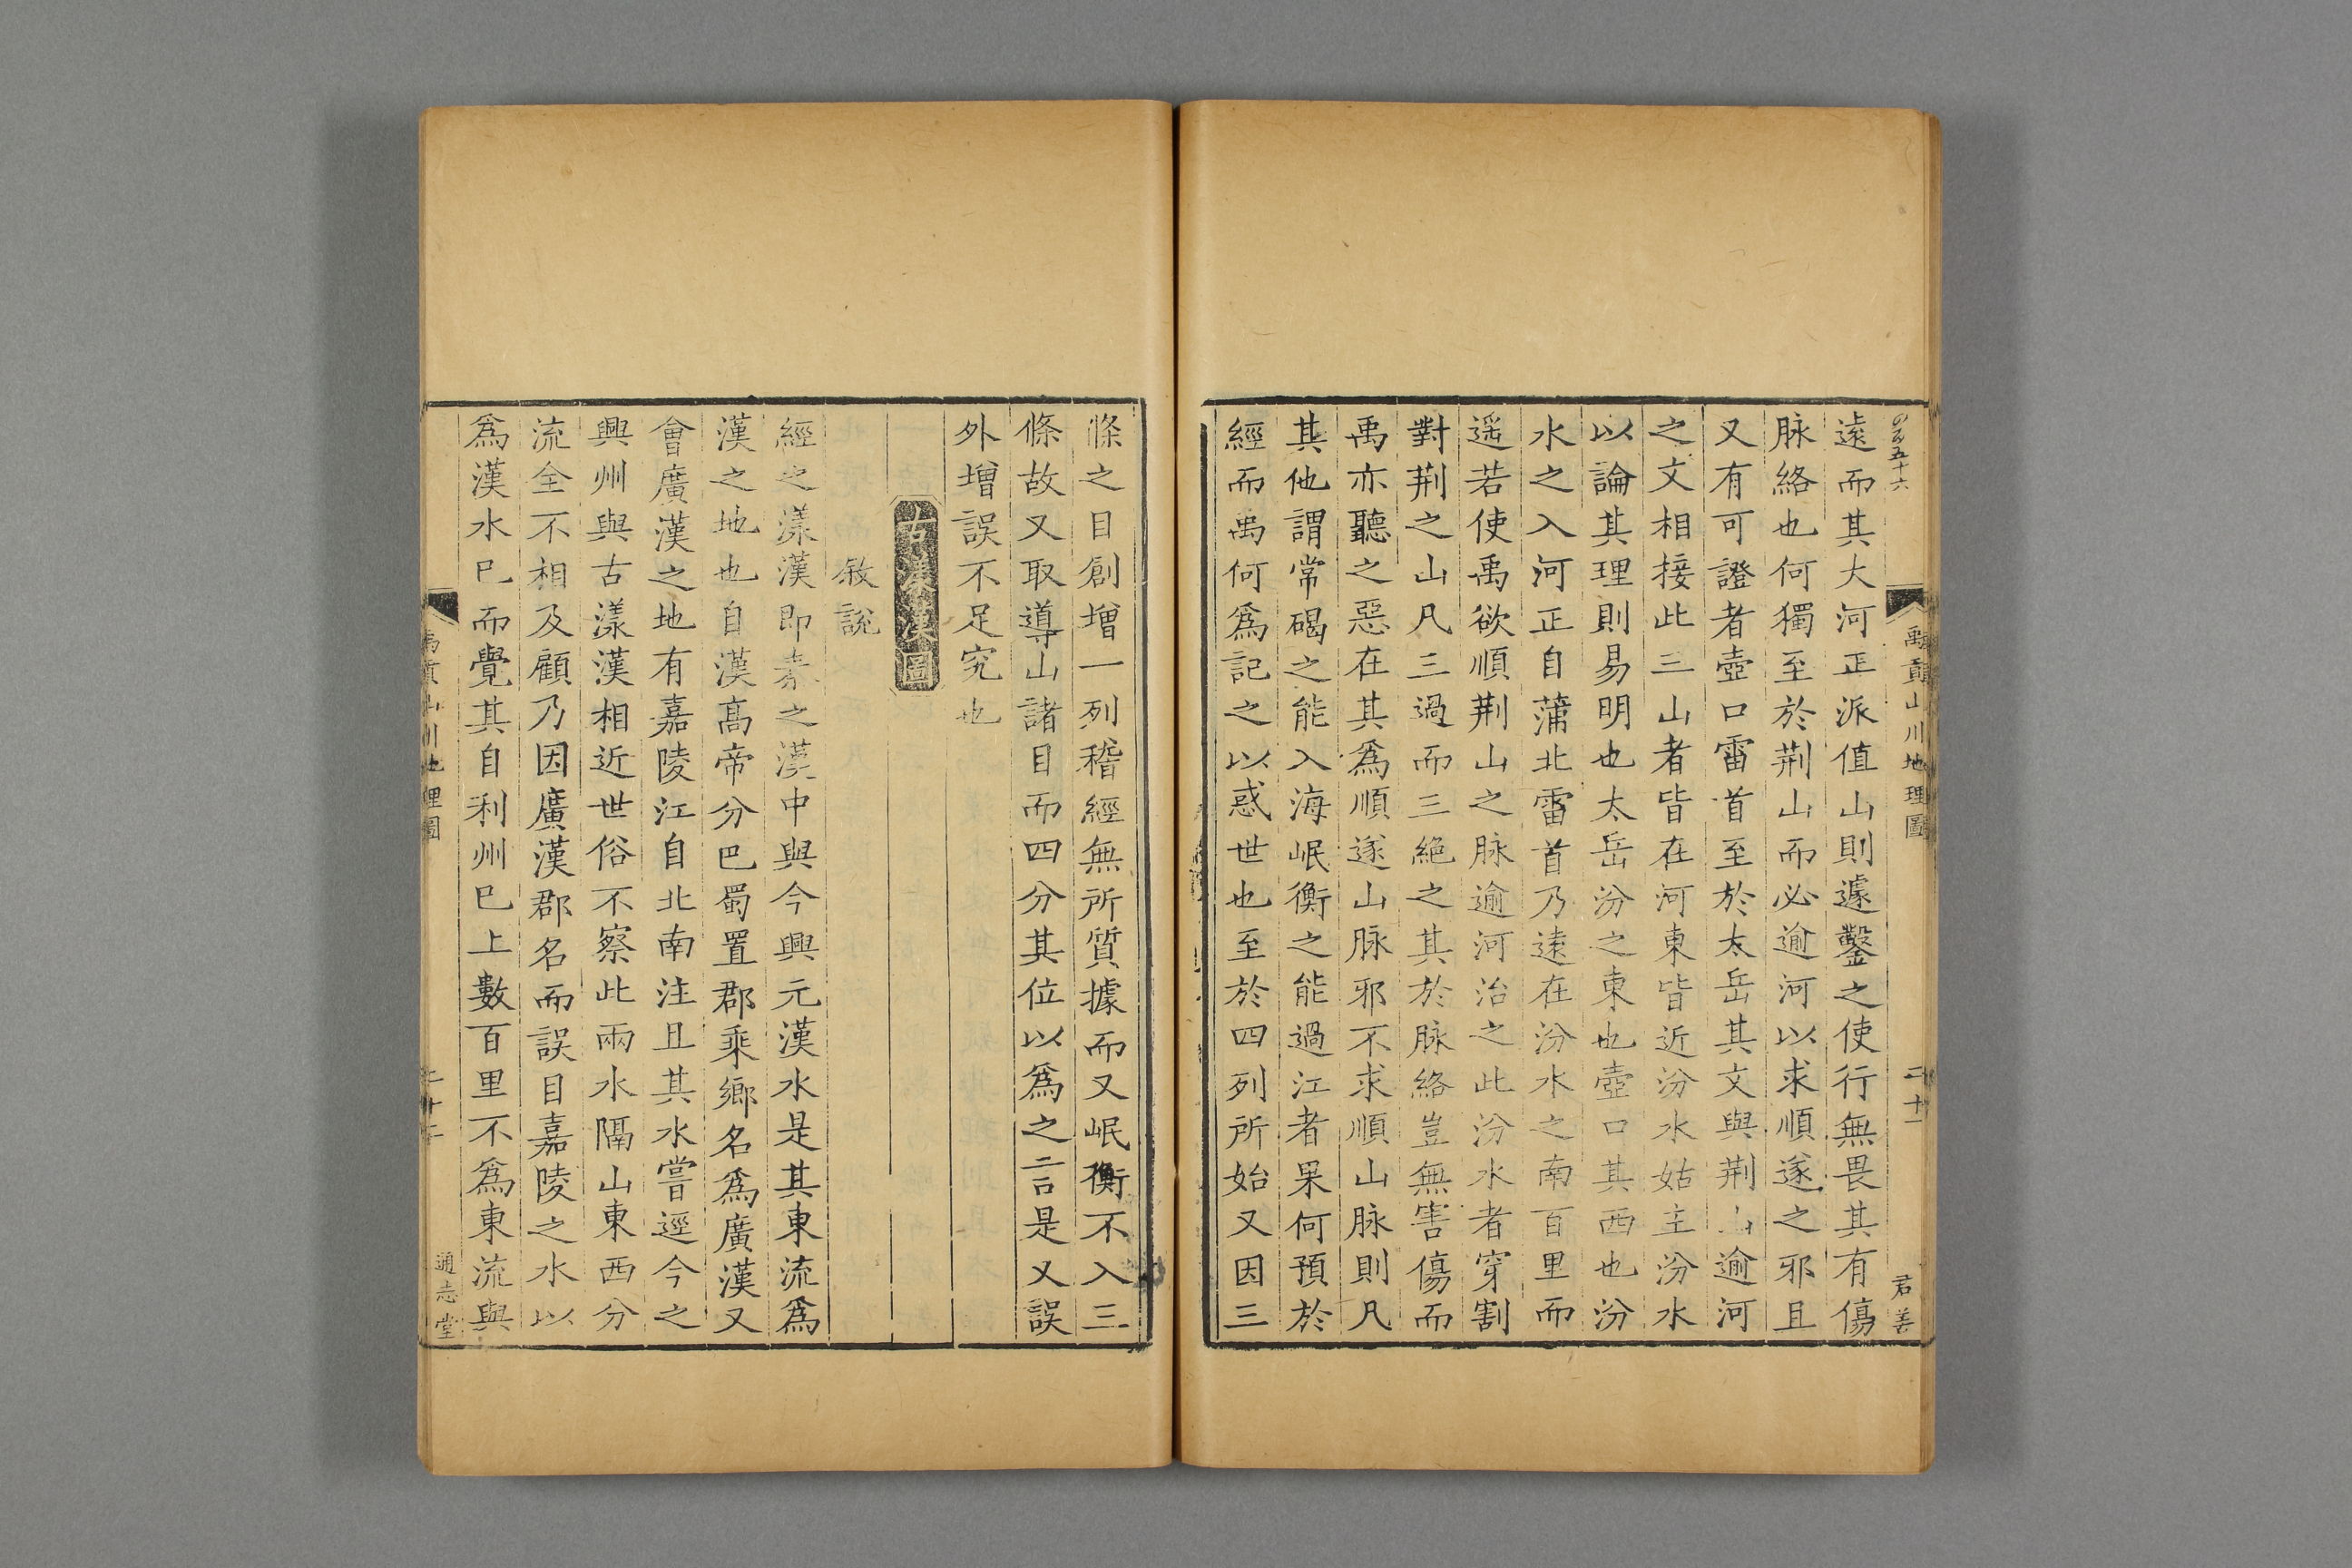 五十六
禹貢山川地理圖
二十一
君美
遠而其大河正派值山則遽鑿之使行無畏其有傷
脉絡也何獨至於荆山而必逾河以求順遂之邪且
又有可證者壺口雷首至於太岳其文與荆山逾河
之文相接此三山者皆在河東皆近汾水姑主汾水
以論其理則易明也太岳汾之東也壺口其西也汾
水之入河正自蒲北雷首乃遠在汾水之南百里而
遥若使禹欲順荆山之脉逾河治之此汾水者穿割
對荆之山凡三過而三絶之其於脉絡豈無害傷而
禹亦聽之惡在其爲順遂山脉邪不求順山脉則凡
其他謂常碣之能入海岷衡之能過江者果何預於
經而禹何爲記之以惑世也至於四列所始又因三
條之目創增一列稽經無所質據而又岷衡不入三
條故又取導山諸目而四分其位以爲之言是又誤
外增誤不足究也
古漾漢圖
敘說
經之漾漢即秦之漢中與今興元漢水是其東流爲
漢之地也自漢髙帝分巴蜀置郡乘鄉名爲廣漢又
會廣漢之地有嘉陵江自北南注且其水嘗逕今之
興州與古漾漢相近世俗不察此兩水隔山東西分
流全不相及顧乃因廣漢郡名而誤目嘉陵之水以
爲漢水巳而覺其自利州巳上數百里不爲東流與
禹貢山川地理圖
通志堂